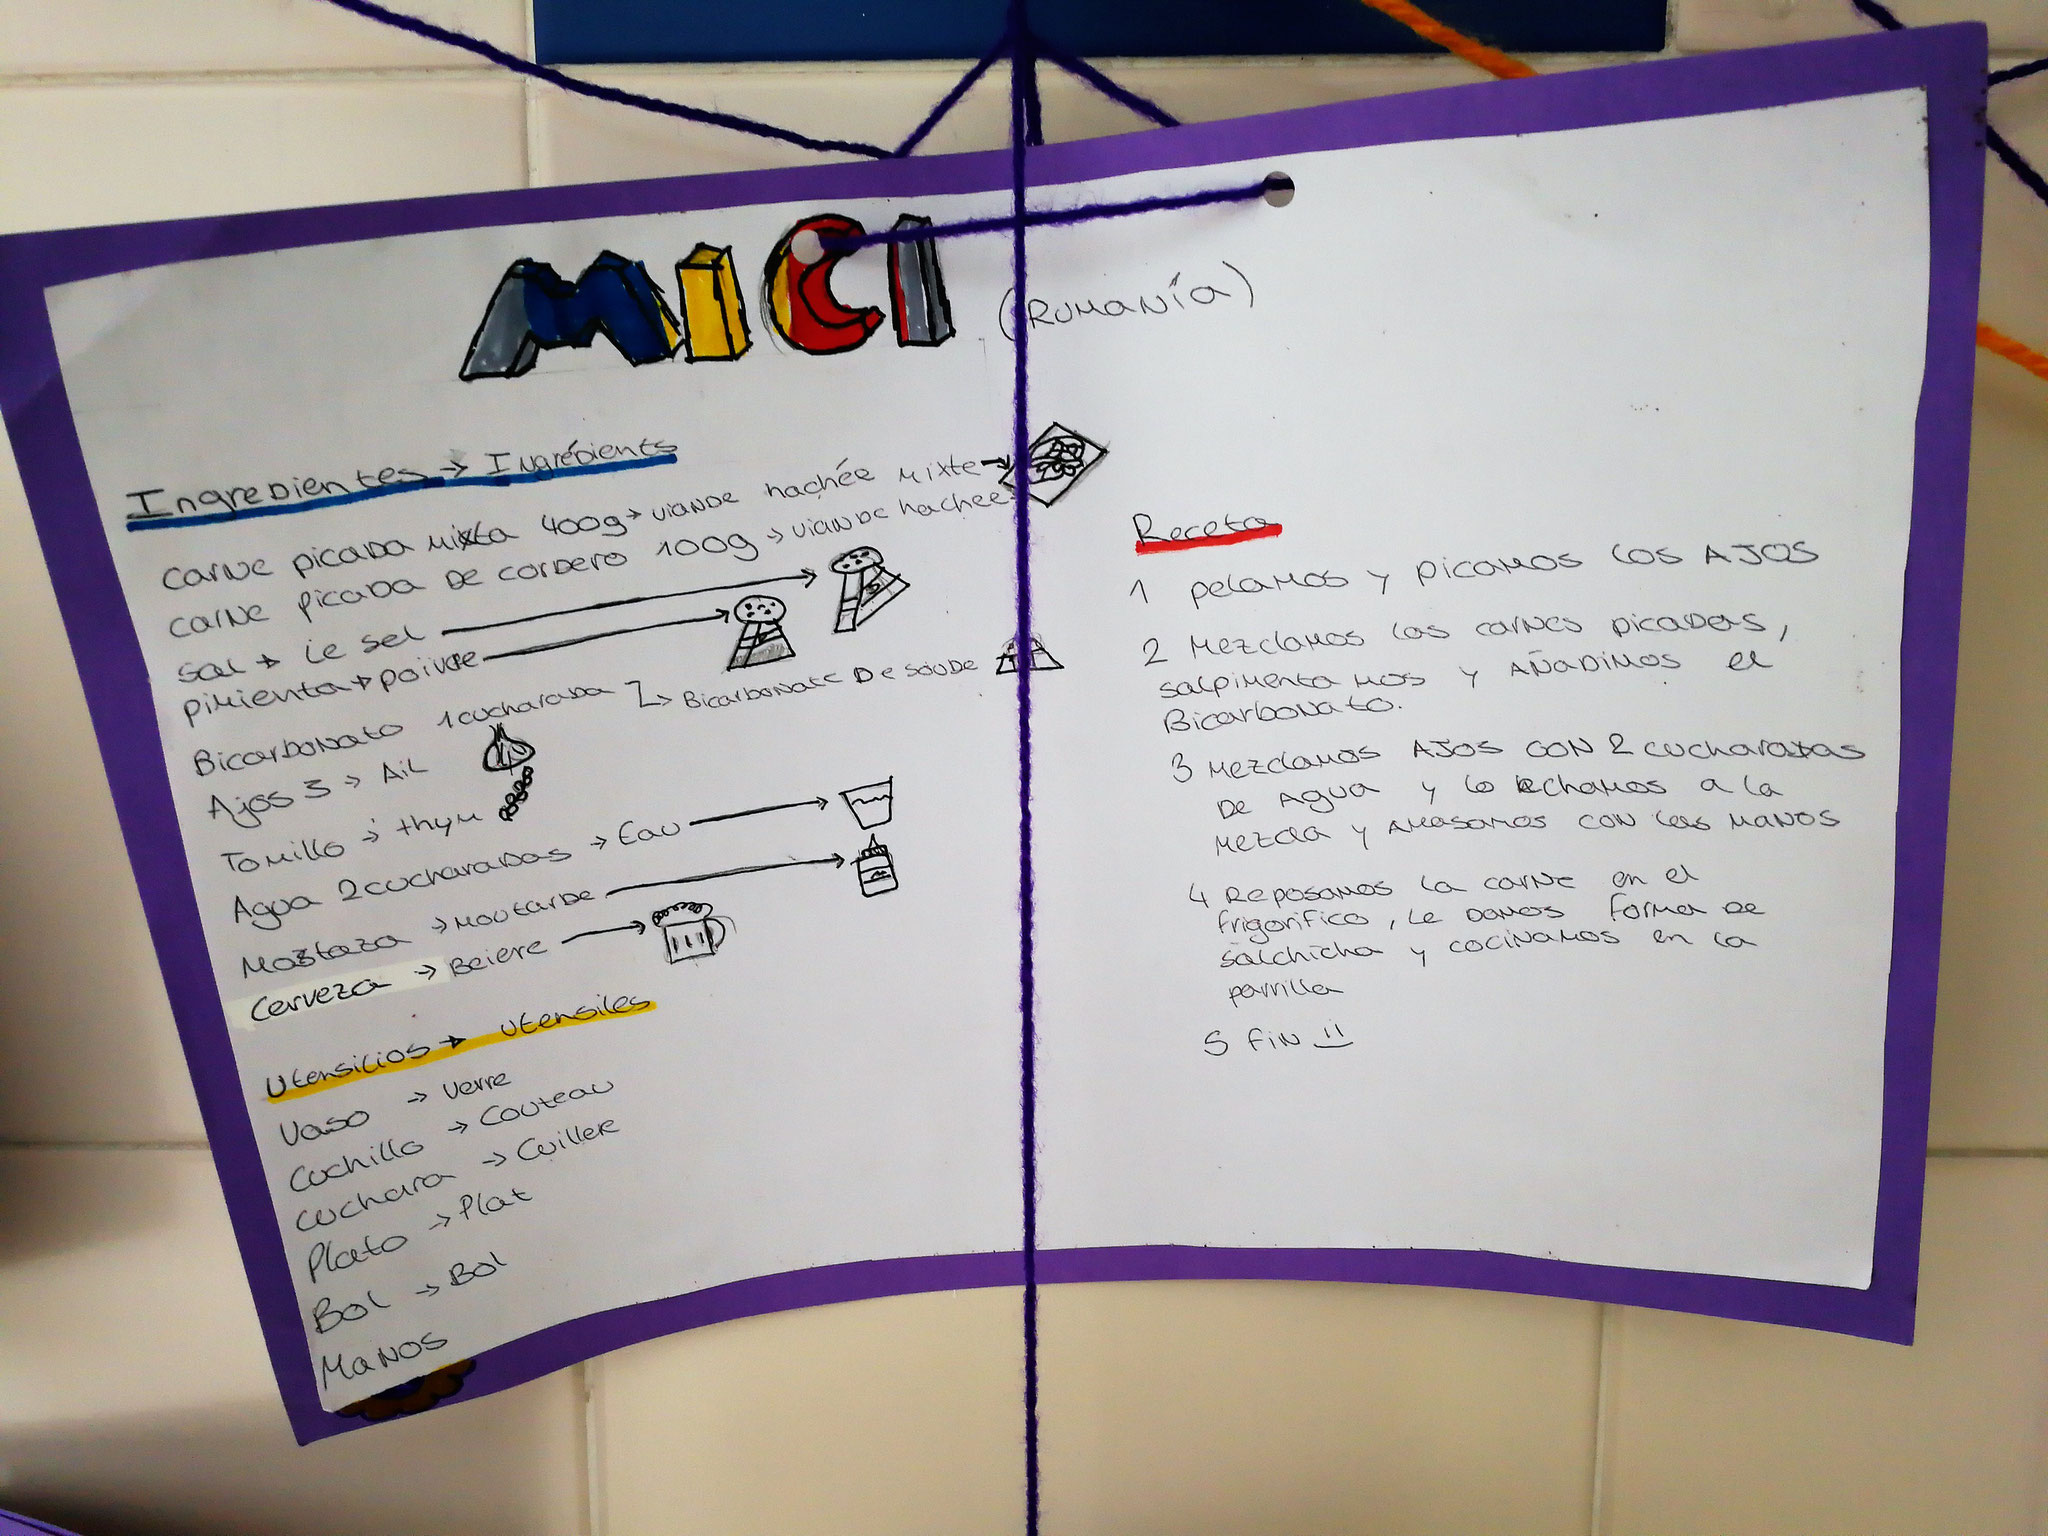 MICI (RUMANÍA)
Ingredientes → Ingrédients
carne picada mixta 400g → viande hachée mixte →
carne picada de cordero 100g → viande hachée
Sal → le sel
pimienta → poivre
Bicarbonato 1 cucharada → Bicarbonate de soude
Ajos 3 → Ail
Tomillo → thym
Agua 2 cucharadas → Eau
Mostaza → moutarde
Cerveza → Beiere
Utensilios → utensiles
Vaso → Verre
Cuchillo → Couteau
cuchara → Cuillere
Plato → Plat
Bol → Bol
Manos
Receta
1 pelamos y picamos los AJOS
2 Mezclamos las carnes picadas,
salpimentamos y AÑADIMOS el
Bicarbonato.
3 Mezclamos AJOS CON 2 cucharadas
de Agua y lo echamos a la
mezcla y amasamos con las manos
4 Reposamos la carne en el
frigorifico, le damos forma de
salchicha y cocinamos en la
parrilla
5 Fin